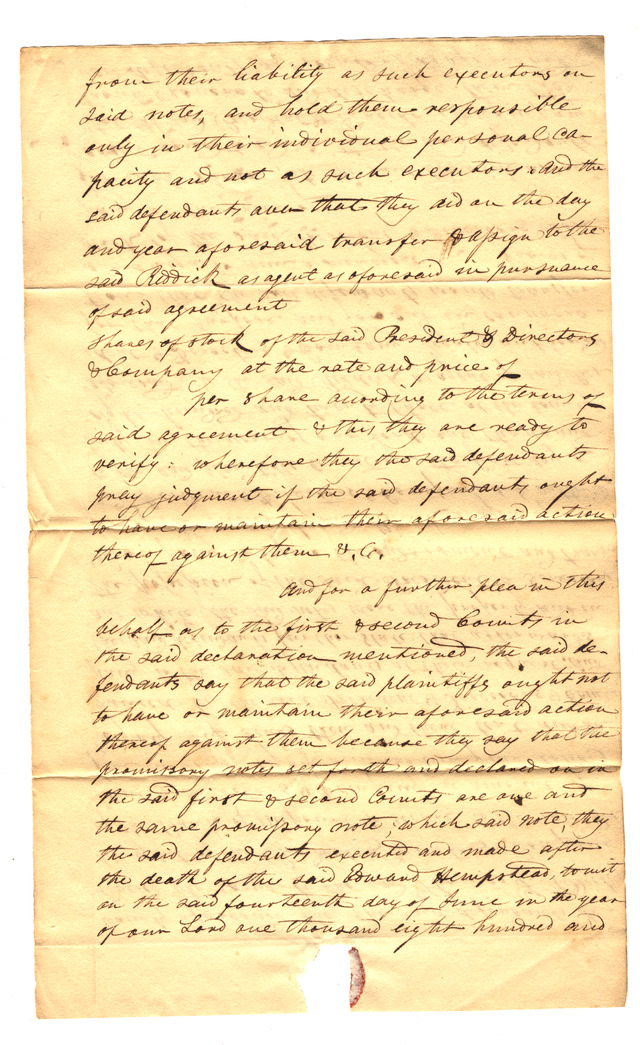 from their liability as such executors on
said notes, and hold them responsible
only in their individual personal ca-
pacity and not as such executors: and the
said defendants aver that they did on the day
and year aforesaid transfer & assign to the
said Riddick as agent as aforesaid in pursuance
of said agreement
shares of stock of the said President & Directors
& Company at the rate and price of
per share according to the terms of
said agreement & this they are ready to
verify: wherefore they the said defendants
pray judgment if the said defendants ought
to have or maintain their aforesaid action
thereof against them &.C.
And for a further plea in this
behalf as to the first & second Counts in
the said declaration mentioned, the said de-
fendants say that the said plaintiffs ought not
to have or maintain their aforesaid action
thereof against them because they say that the
promissory notes set forth and declared on in
the said first & second Counts are one and
the same promissory note; which said note, they
the said defendants executed and made after
the death of the said Edward Hempstead, towit
on the said fourteenth day of June in the year
of our Lord one thousand eight hundred and